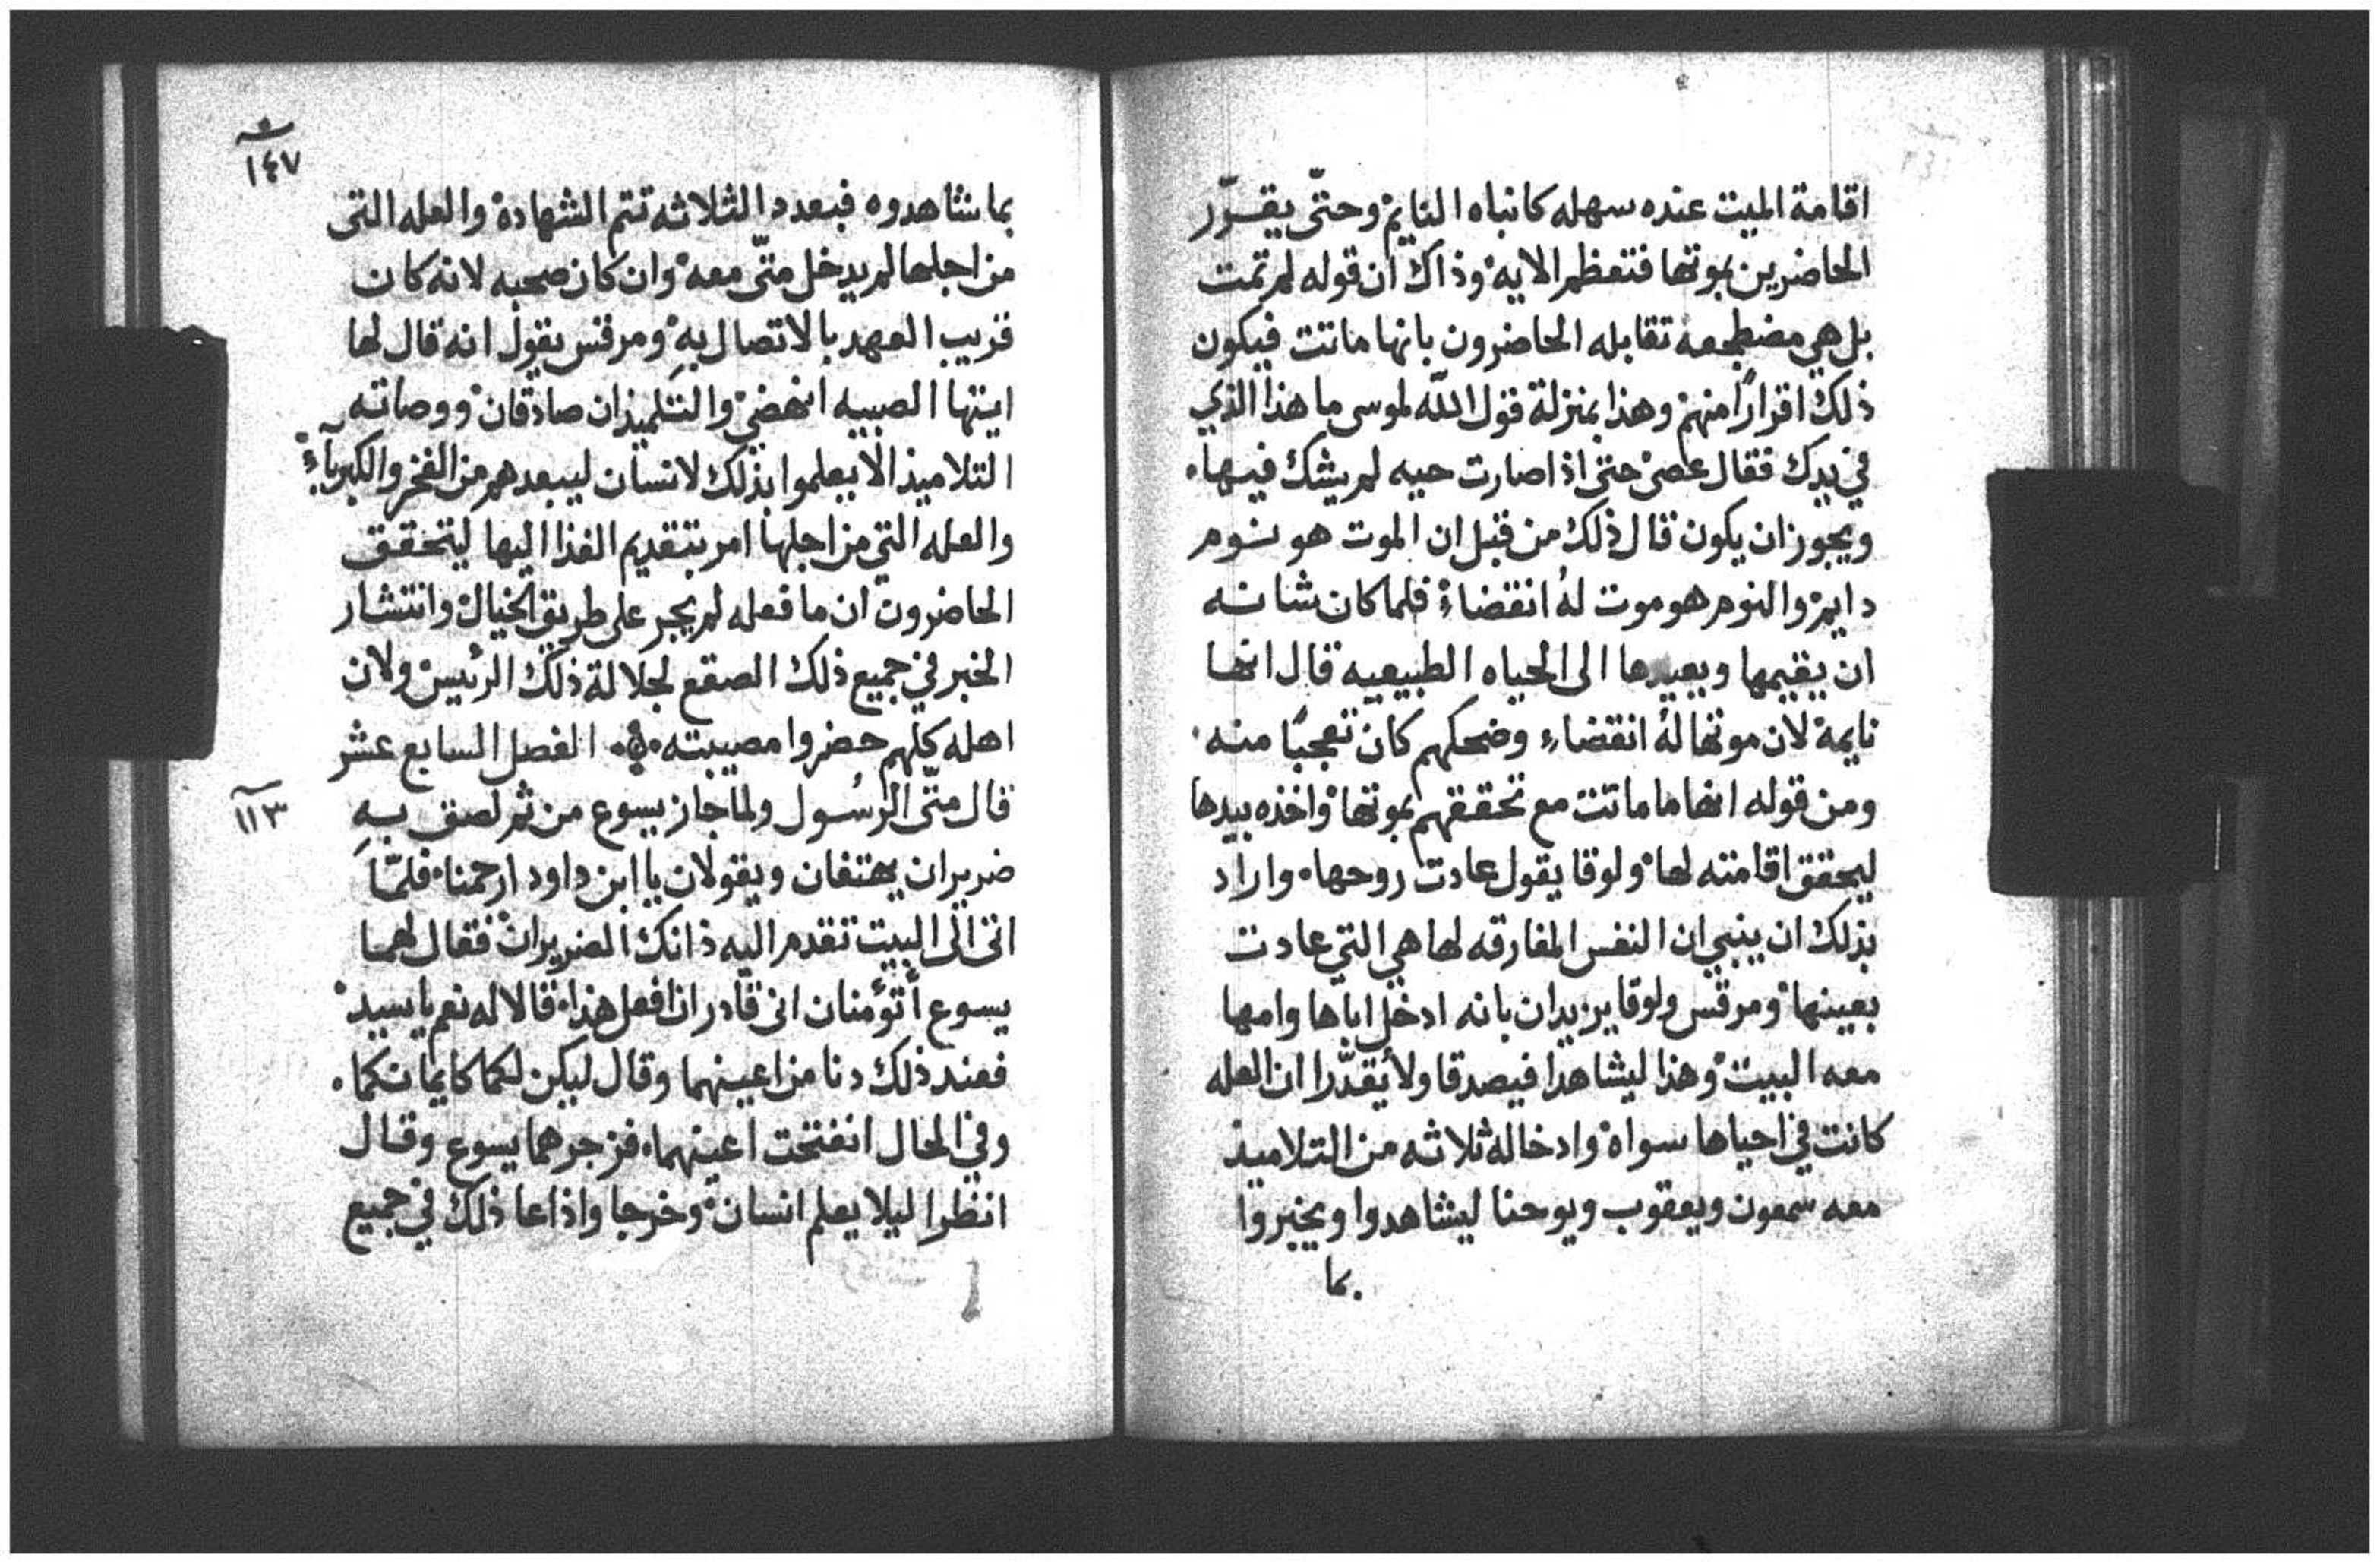 اقامة الميت عنده سهله كانباه النايم وحتّى يقرّر
الحاضرين بموتها فتعظم الايه وذاك ان قوله لم تمت
بل هي مضطجعه تقابله الحاضرون بانها ماتت فيكون
ذلك اقرارًا منهم وهذا بمنزلة قول الله لموسى ما هذا الذي
في يدك فقال عصى حتى اذا صارت حيه لم يشك فيها
ويجوز ان يكون قال ذلك من قبل ان الموت هو نوم
دايم والنوم هو موت لهُ انقضاء فلما كان شانه
ان يقيمها ويعيدها الى الحياه الطبيعيه قال انها
نايمة لان موتها لهُ انقضاء وضحكهم كان تعجبًا منه
ومن قوله انها ما ماتت مع تحققهم بموتها واخذه بيدها
ليحقق اقامته لها ولوقا يقول عادت روحها واراد
بذلك ان ينبي ان النفس المفارقه لها هي التي عادت
بعينها ومرقس ولوقا يزيدان بانه ادخل اباها وامها
معه البيت وهذا ليشاهدا فيصدقا ولا يقدّرا ان العله
كانت في احياها سواه وادخاله ثلاثه من التلاميذ
معه سمعون ويعقوب ويوحنا ليشاهدوا ويخبروا
بما
١٤٧
بما شاهدوه فبعدد الثلاثه تتم الشهادة والعله التى
من اجلها لم يدخل متّى معه وان كان صحبه لانه كان
قريب العهد بالاتصال به ومرقس يقول انه قال لها
ايتها الصبيه انهضي والتلميذان صادقان ووصاته
التلاميذ الا يعلموا بذلك لانسان ليبعدهم من الفخر والكبرآء
والعله التي من اجلها امر بتقديم الغذا اليها ليتحقق
الحاضرون ان ما فعله لم يجر على طريق الخيال وانتشار
الخبر في جميع ذلك الصقع لجلالة ذلك الرئيس ولان
اهله كلهم حضروا مصيبته الفصل السابع عشر
١١٣
قال متّى الرسُول ولما جاز يسوع من ثم لصق به
ضريران يهتفان ويقولان يا ابن داود ارحمنا فلمّا
اتى الى البيت تقدم اليه ذانك الضريران فقال لهما
يسوع أتؤمنان انى قادر ان افعل هذا قالا له نعم يا سيد
فعند ذلك دنا من اعينهما وقال ليكن لكما كايمانكما
وفي الحال انفتحت اعينهما فزجرهما يسوع وقال
انظرا ليلا يعلم انسان وخرجا واذاعا ذلك في جميع